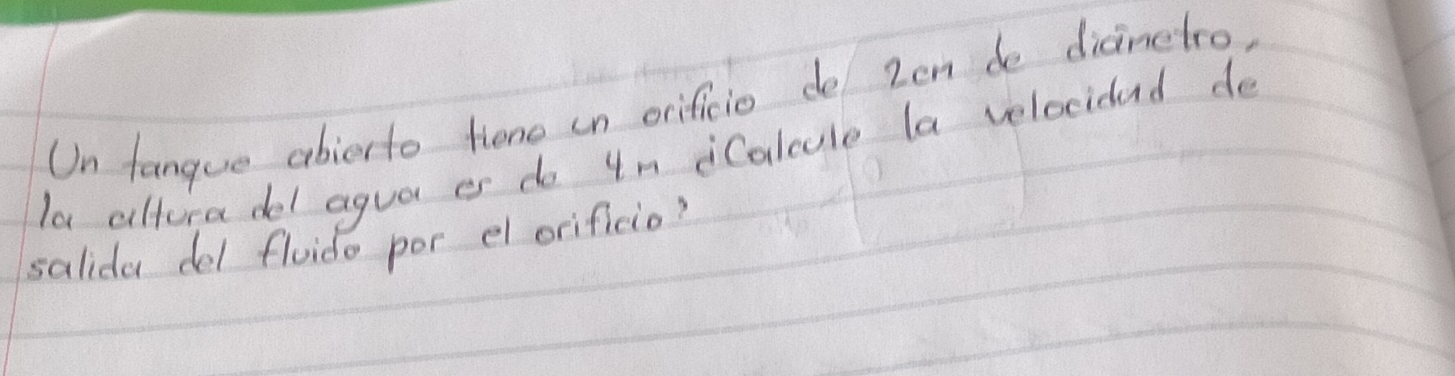 Un tanque abierto tiene un orificio de 2cm de diámetro,
la altura del agua es de 4m ¿Calcule la velocidad de
salida del fluido por el orificio?